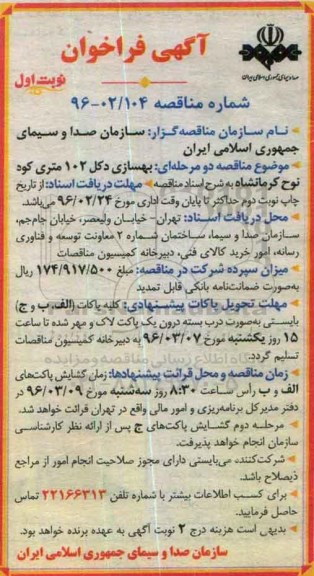 صدا و سیمای جمهوری اسلامی ایران
آگهی فراخوان
نوبت اول
شماره مناقصه ۹۶-۰۲/۱۰۴
نام سازمان مناقصه‌گزار: سازمان صدا و سیمای
جمهوری اسلامی ایران
موضوع مناقصه دو مرحله‌ای: بهسازی دکل ۱۰۲ متری کود
نوح کرمانشاه به شرح اسناد مناقصه مهلت دریافت اسناد: از تاریخ
چاپ نوبت دوم حداکثر تا پایان وقت اداری مورخ ۹۶/۰۲/۲۴ می‌باشد.
محل دریافت اسناد: تهران- خیابان ولیعصر، خیابان جام‌جم،
سازمان صدا و سیما، ساختمان شماره ۲ معاونت توسعه و فناوری
رسانه، امور خرید کالای فنی، دبیرخانه کمیسیون مناقصات
میزان سپرده شرکت در مناقصه: مبلغ ۱۷۴/۹۱۷/۵۰۰ ریال
به‌صورت ضمانت‌نامه بانکی قابل تمدید
مهلت تحویل پاکات پیشنهادی: کلیه پاکات (الف، ب و ج)
بایستی به‌صورت درب بسته درون یک پاکت لاک و مهر شده تا ساعت
۱۵ روز یکشنبه مورخ ۹۶/۰۳/۰۷ به دبیرخانه کمیسیون مناقصات
تسلیم گردد.
زمان مناقصه و محل قرائت پیشنهادها: زمان گشایش پاکت‌های
الف و ب رأس ساعت ۸:۳۰ روز سه‌شنبه مورخ ۹۶/۰۳/۰۹ در
دفتر مدیرکل برنامه‌ریزی و امور مالی واقع در تهران قرائت خواهد شد.
مرحله دوم گشایش پاکت‌های ج پس از ارائه نظر کارشناسی
سازمان انجام خواهد پذیرفت.
شرکت‌کننده می‌بایستی دارای مجوز صلاحیت انجام امور از مراجع
ذیصلاح باشد.
برای کسب اطلاعات بیشتر با شماره تلفن ۲۲۱۶۶۳۱۳ تماس
حاصل فرمایید.
بدیهی است هزینه درج ۲ نوبت آگهی به عهده برنده خواهد بود.
سازمان صدا و سیمای جمهوری اسلامی ایران